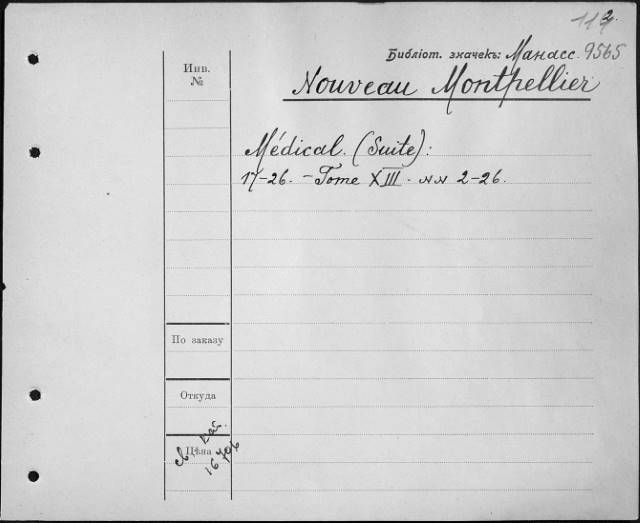 112
Библіот. значекъ: Манасс. 9565
Инв.
№
Nouveau Montpellier
Médical. (Suite):
17-26. - Tome XIII. NN 2-26.
По заказу
Откуда
Цѣна